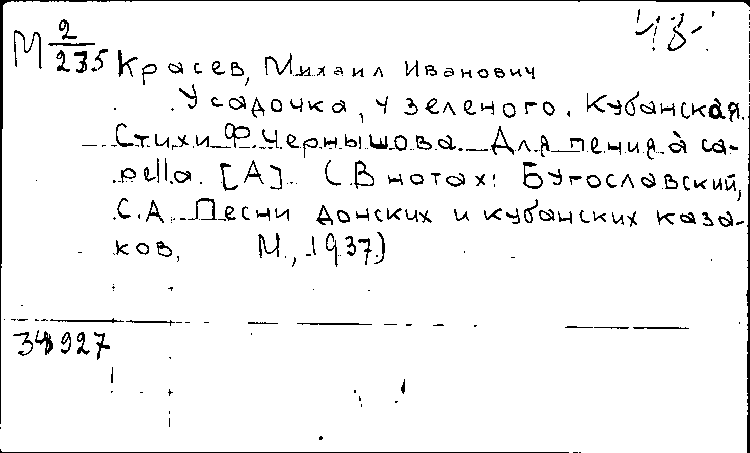 М 2/235 Красев, Михаил Иванович
У садочка, у зеленого. Кубанская.
Стихи Ф. Чернышова. Для пения à ca-
pella. [А] (В нотах: Бугославский,
С.А. Песни донских и кубанских каза-
ков. М., 1937.)
34927